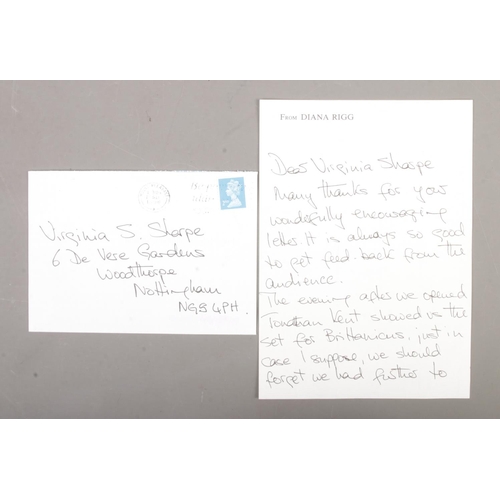 From DIANA RIGG
Dear Virginia Sharpe
Many thanks for your
wonderfully encouraging
letter. It is always so good
to get feed-back from the
audience.
The evening after we opened
Jonathan Kent showed us the
set for Brittanicus, just in
case I suppose, we should
forget we had further to
Virginia S. Sharpe
6 De Vere Gardens
Woodthorpe
Nottingham
NG5 4PH.